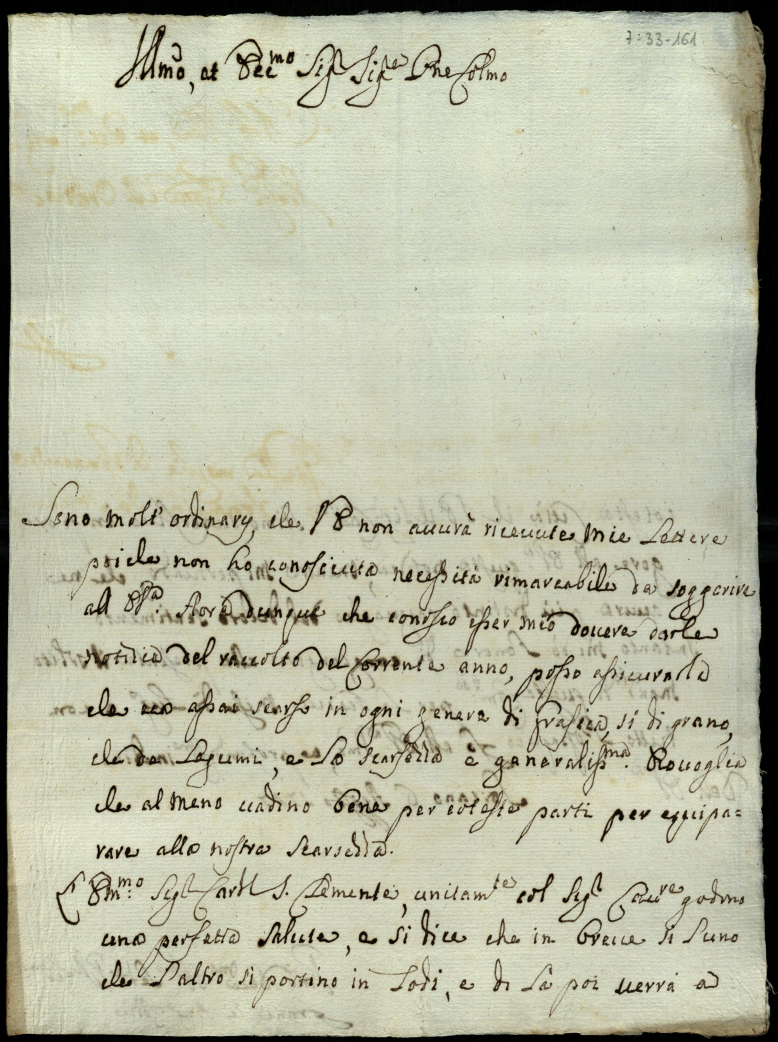 7:33-161
Illmo, et Eccmo Sigr Sigre Pne Colmo
Sono molt' ordinarij, che V E non avvrà ricevute mie Lettere
poiche non ho conosciuta necessità rimarcabile da soggerire
all' E Va. Hora dunque che conosco esser mio dovere darle
notitia del raccolto del Corrente anno, posso assicurarla
che va assai scarso in ogni genere di frasica, si di grano,
che de Legumi, e la scarsezza è generalissma. Iddio voglia
che al meno vadino bene per coteste parti per equipa=
rare alla nostra scarsezza.
L' Emmo Sigr Cardl S. Clemente, unitamte col Sigr Cavre godono
una perfetta salute, e si dice che in breve si l'uno
che l'altro si portino in Lodi, e di là poi verrà a